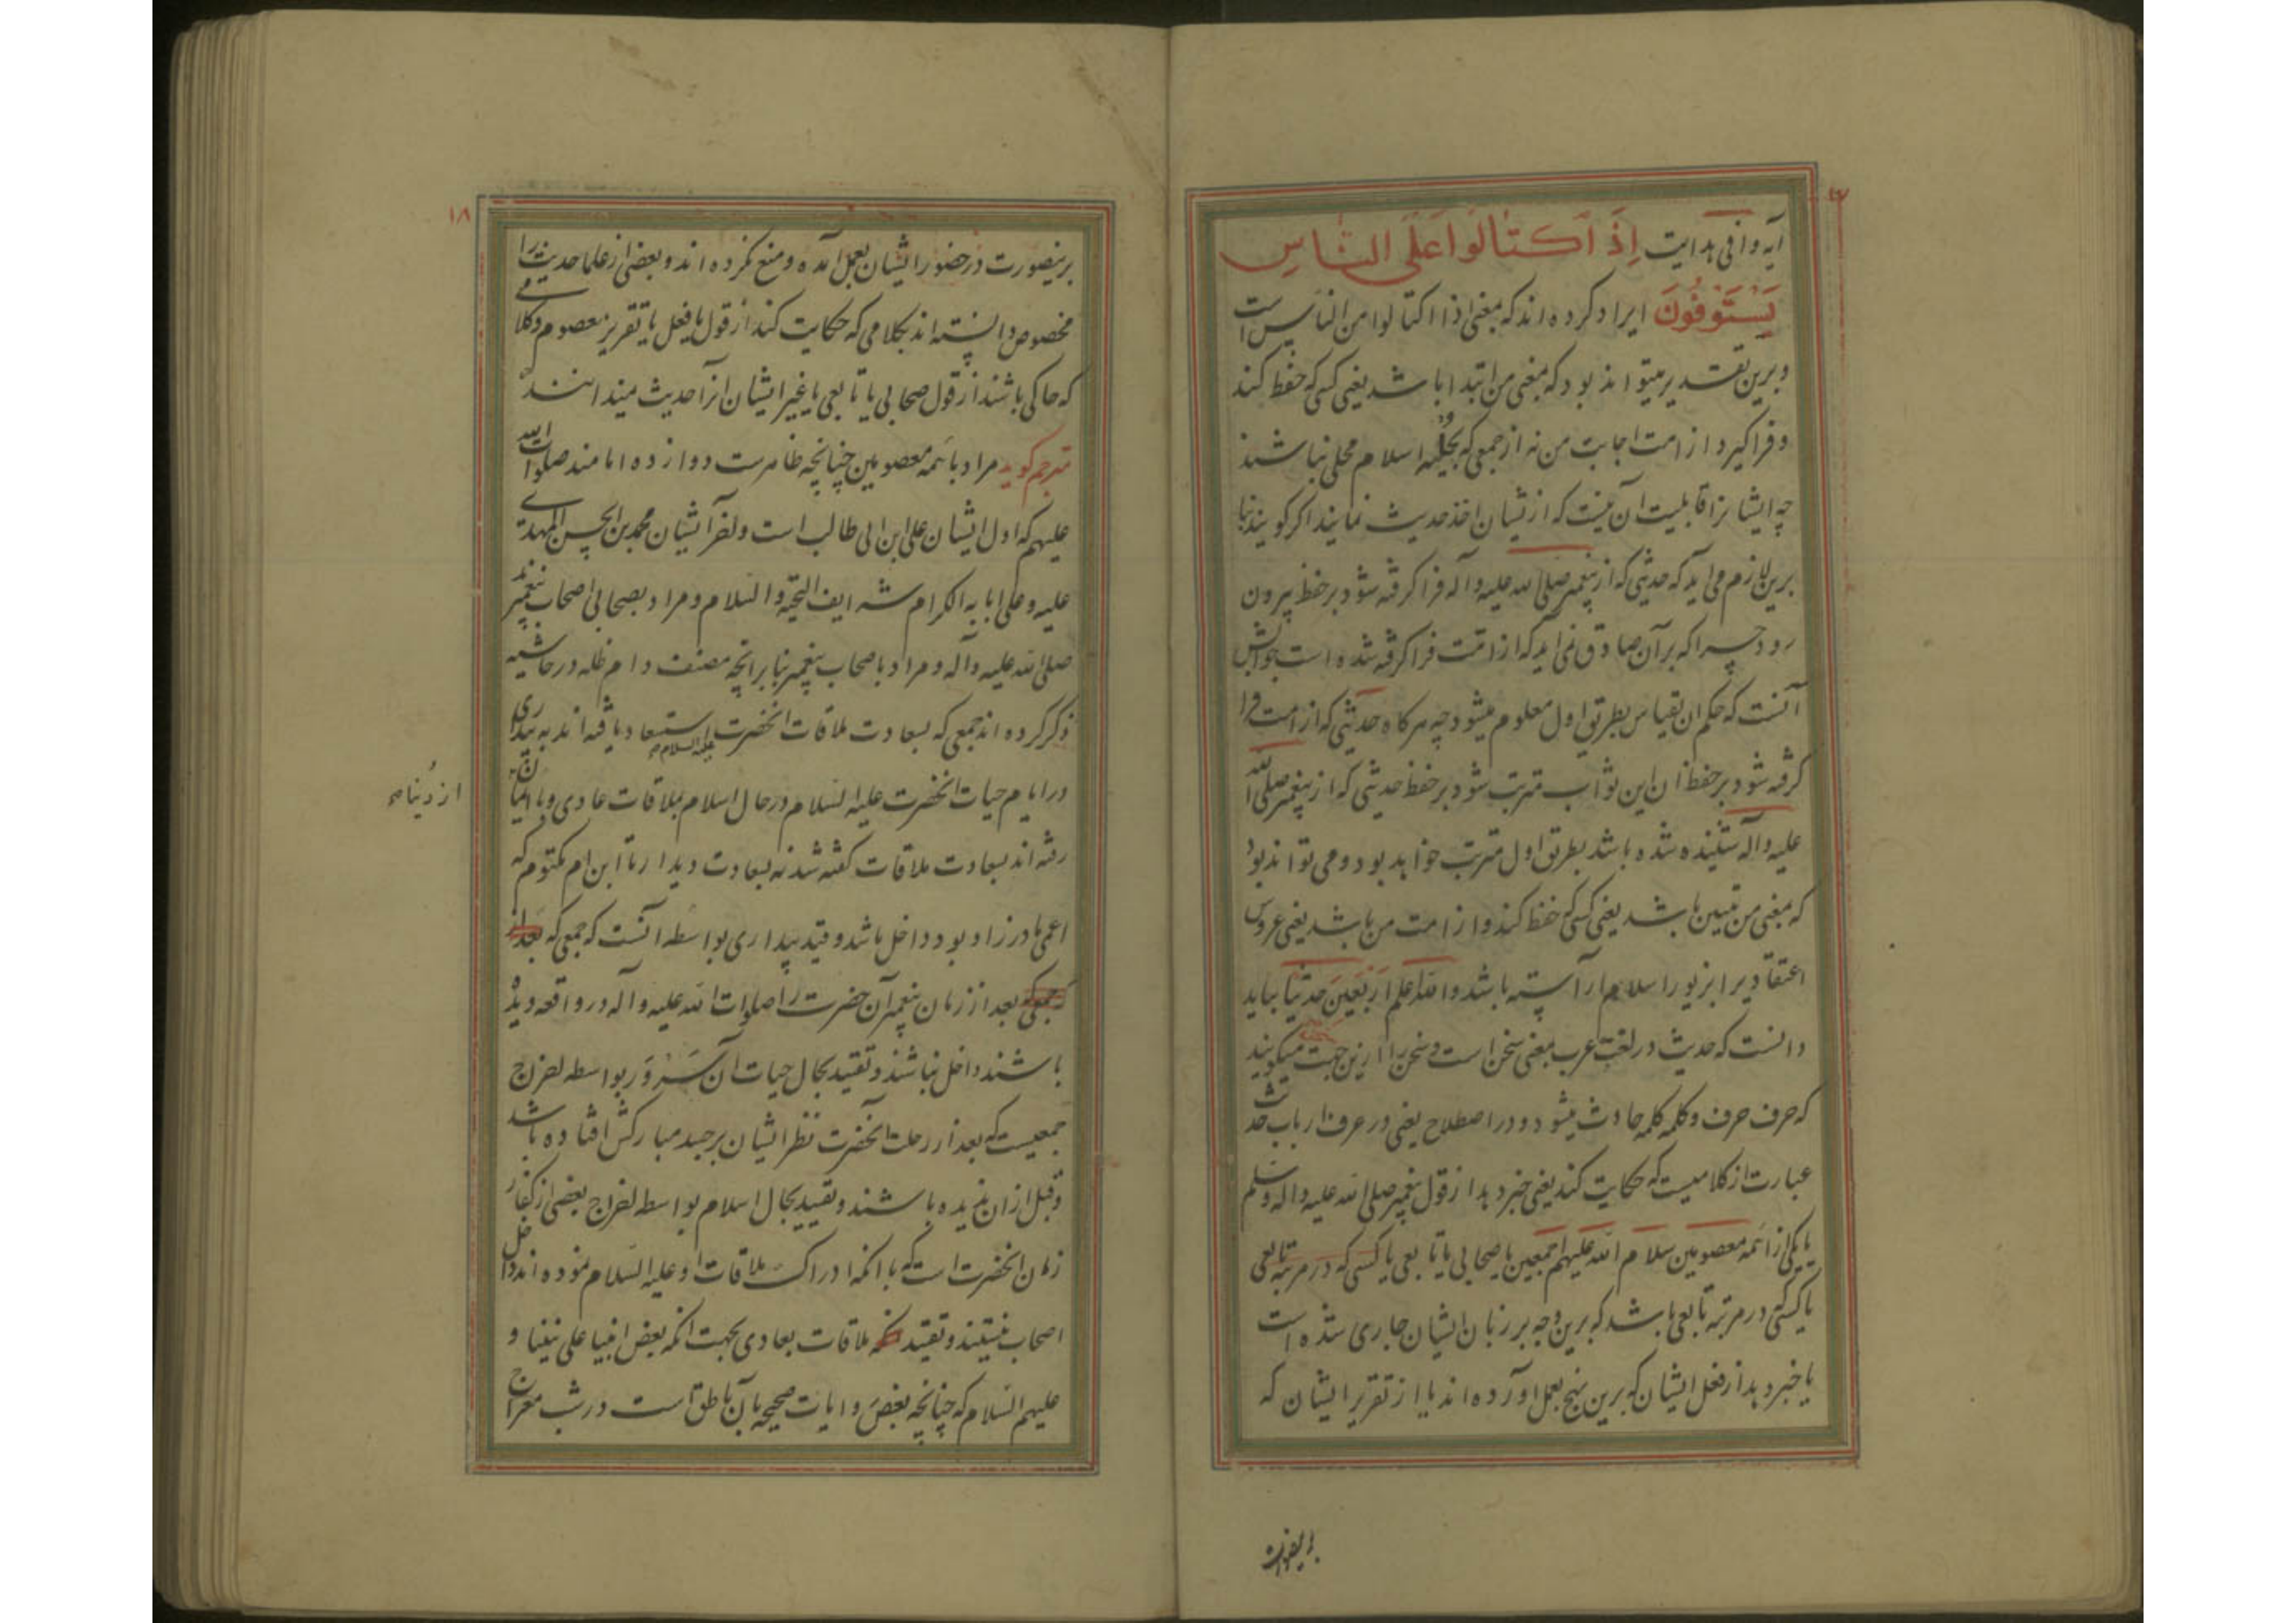 ۱۷
آیه وافی هدایت إِذَ آكتَالُوا عَلَى النَّاسِ
يَسْتَوْفُونَ ایراد کرده اند که بمعنی اذا اکتالوا من الناس است
و برین تقدیر میتواند بود که بمعنی من ابتدا باشد یعنی کسی که حفظ کند
و فراگیرد از امت اجابت من نه از جمعی که بحلیه اسلام محلی نباشند
چه ایشانرا قابلیت آن نیست که ازیشان اخذ حدیث نمایند اگر گویند بنا
برین لازم می آید که حدیثی که از پیغمبر صلی الله علیه و آله فرا گرفته شود بر حفظ بیرون
رود چرا که بر آن صادق نمی آید که از امت فرا گرفته شده است جوابش
آنست که حکم ان بقیاس بطریق اول معلوم میشود چه هرگاه حدیثی که از امت فرا
گرفته شود بر حفظ ان این ثواب مترتب شود بر حفظ حدیثی که از پیغمبر صلی الله
علیه واله شنیده شده باشد بطریق اول مترتب خواهد بود و می تواند بود
که بمعنی من تبیین باشد یعنی کسی که حفظ کند و از امت من باشد یعنی عروس
اعتقاد برا بزیور اسلام آراسته باشد والله اعلم اَرْبَعِینَ حدیثا بباید
دانست که حدیث در لغت عرب بمعنی سخن است و سخن را ازین جهت میگویند
که حرف حرف و کلمه کلمه حادث میشود و در اصطلاح یعنی در عرف ارباب حدیث
عبارت از کلامیست که حکایت کند یعنی خبر دهد از قول پیغمبر صلی الله علیه واله وسلم
یا یکی از ائمه معصومین سلام الله علیهم اجمعین یا صحابی یا تابعی یا کسی که در مرتبه تابعی
یا کسی در مرتبه تابعی باشد که برین وجه بر زبان ایشان جاری شده است
یا خبر دهد از فعل ایشان که برین نهج بعمل اورده اند یا از تقریر ایشان که
۱۸
برینصورت در حضور ایشان بعمل آمده و منع نکرده اند و بعضی از علما حدیث را
مخصوص دانسته اند بکلامی که حکایت کند از قول یا فعل یا تقریر معصوم و کلامی
که حاکی باشند از قول صحابی یا تابعی یا غیر ایشان انرا حدیث میدانند
مترجم گوید مراد بائمه معصومین چنانچه ظاهرست دوازده امامند صلوات الله
علیهم که اول ایشان علی ابن ابی طالب است و اخر ایشان محمد بن الحسن المهدی
علیه و علی ابایه الکرام شرایف التحیة و السلام و مراد بصحابی اصحاب پیغمبر
صلی الله علیه و آله و مراد باصحاب پیغمبر بنا برانچه مصنف دام ظله در حاشیه
ذکر کرده اند جمعی که بسعادت ملاقات انحضرت علیه السلام استسعاد یافته اند به بیداری
در ایام حیات انحضرت علیه السلام در حال اسلام بملاقات عادی و با ایمان
از دنیا صح
رفته اند بسعادت ملاقات گفته شد نه بسعادت دیدار تا ابن ام مکتوم که
اعمی مادرزاد بود داخل باشد و قید بیداری بواسطه آنست که جمعی که بعد از
که جمعی بعد از زمان پیغمبر آن حضرت را صلوات الله علیه و آله در واقعه دیده
باشند داخل نباشند و تقیید بحال حیات آن سَرْوَر بواسطه اخراج
جمعیست که بعد از رحلت آنحضرت نظر ایشان بر جسد مبارکش افتاده باشد
و قبل ازان ندیده باشند و تقیید بحال اسلام بواسطه اخراج بعضی از کفار
زمان انحضرت است که با انکه ادراک ملاقات او علیه السلام نموده اند داخل
اصحاب نیستند و تقیید ملاقات بعادی بجهت انکه بعض انبیا علی نبینا و
علیهم السلام که چنانچه بعض روایات صحیحه بآن ناطق است در شب معراج
برینصورت